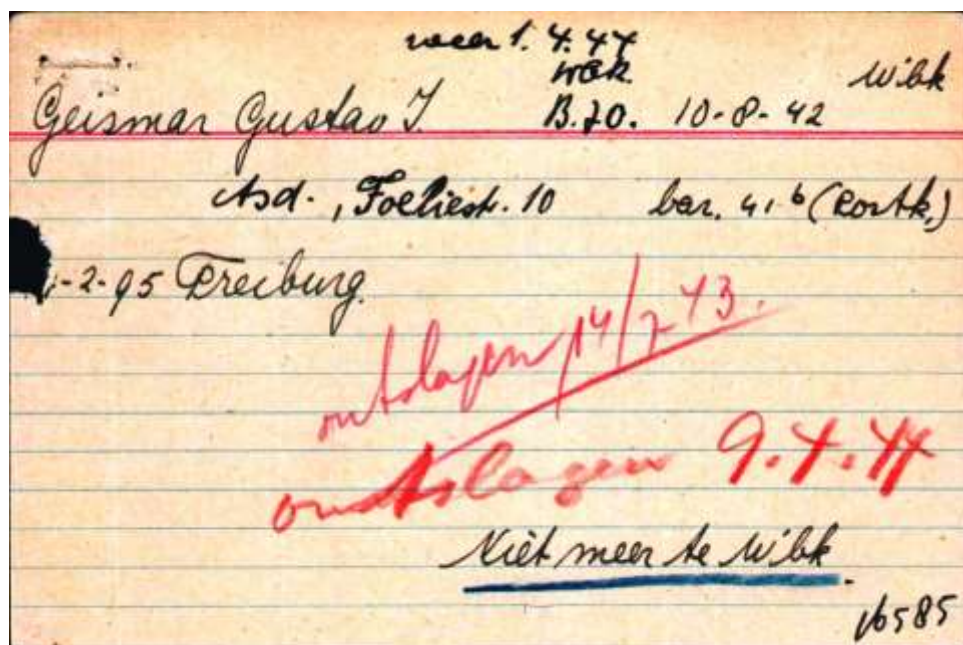 weer 1.4.44
WBK. Wibk
Geismar Gustav J. B.70. 10-8-42
Asd., Foeliestr. 10 bar. 41 b (Portk.)
-2-95 Freiburg.
ontslagen 14/7 43.
ontslagen 9.4.44
Niet meer te Wibk.
16585